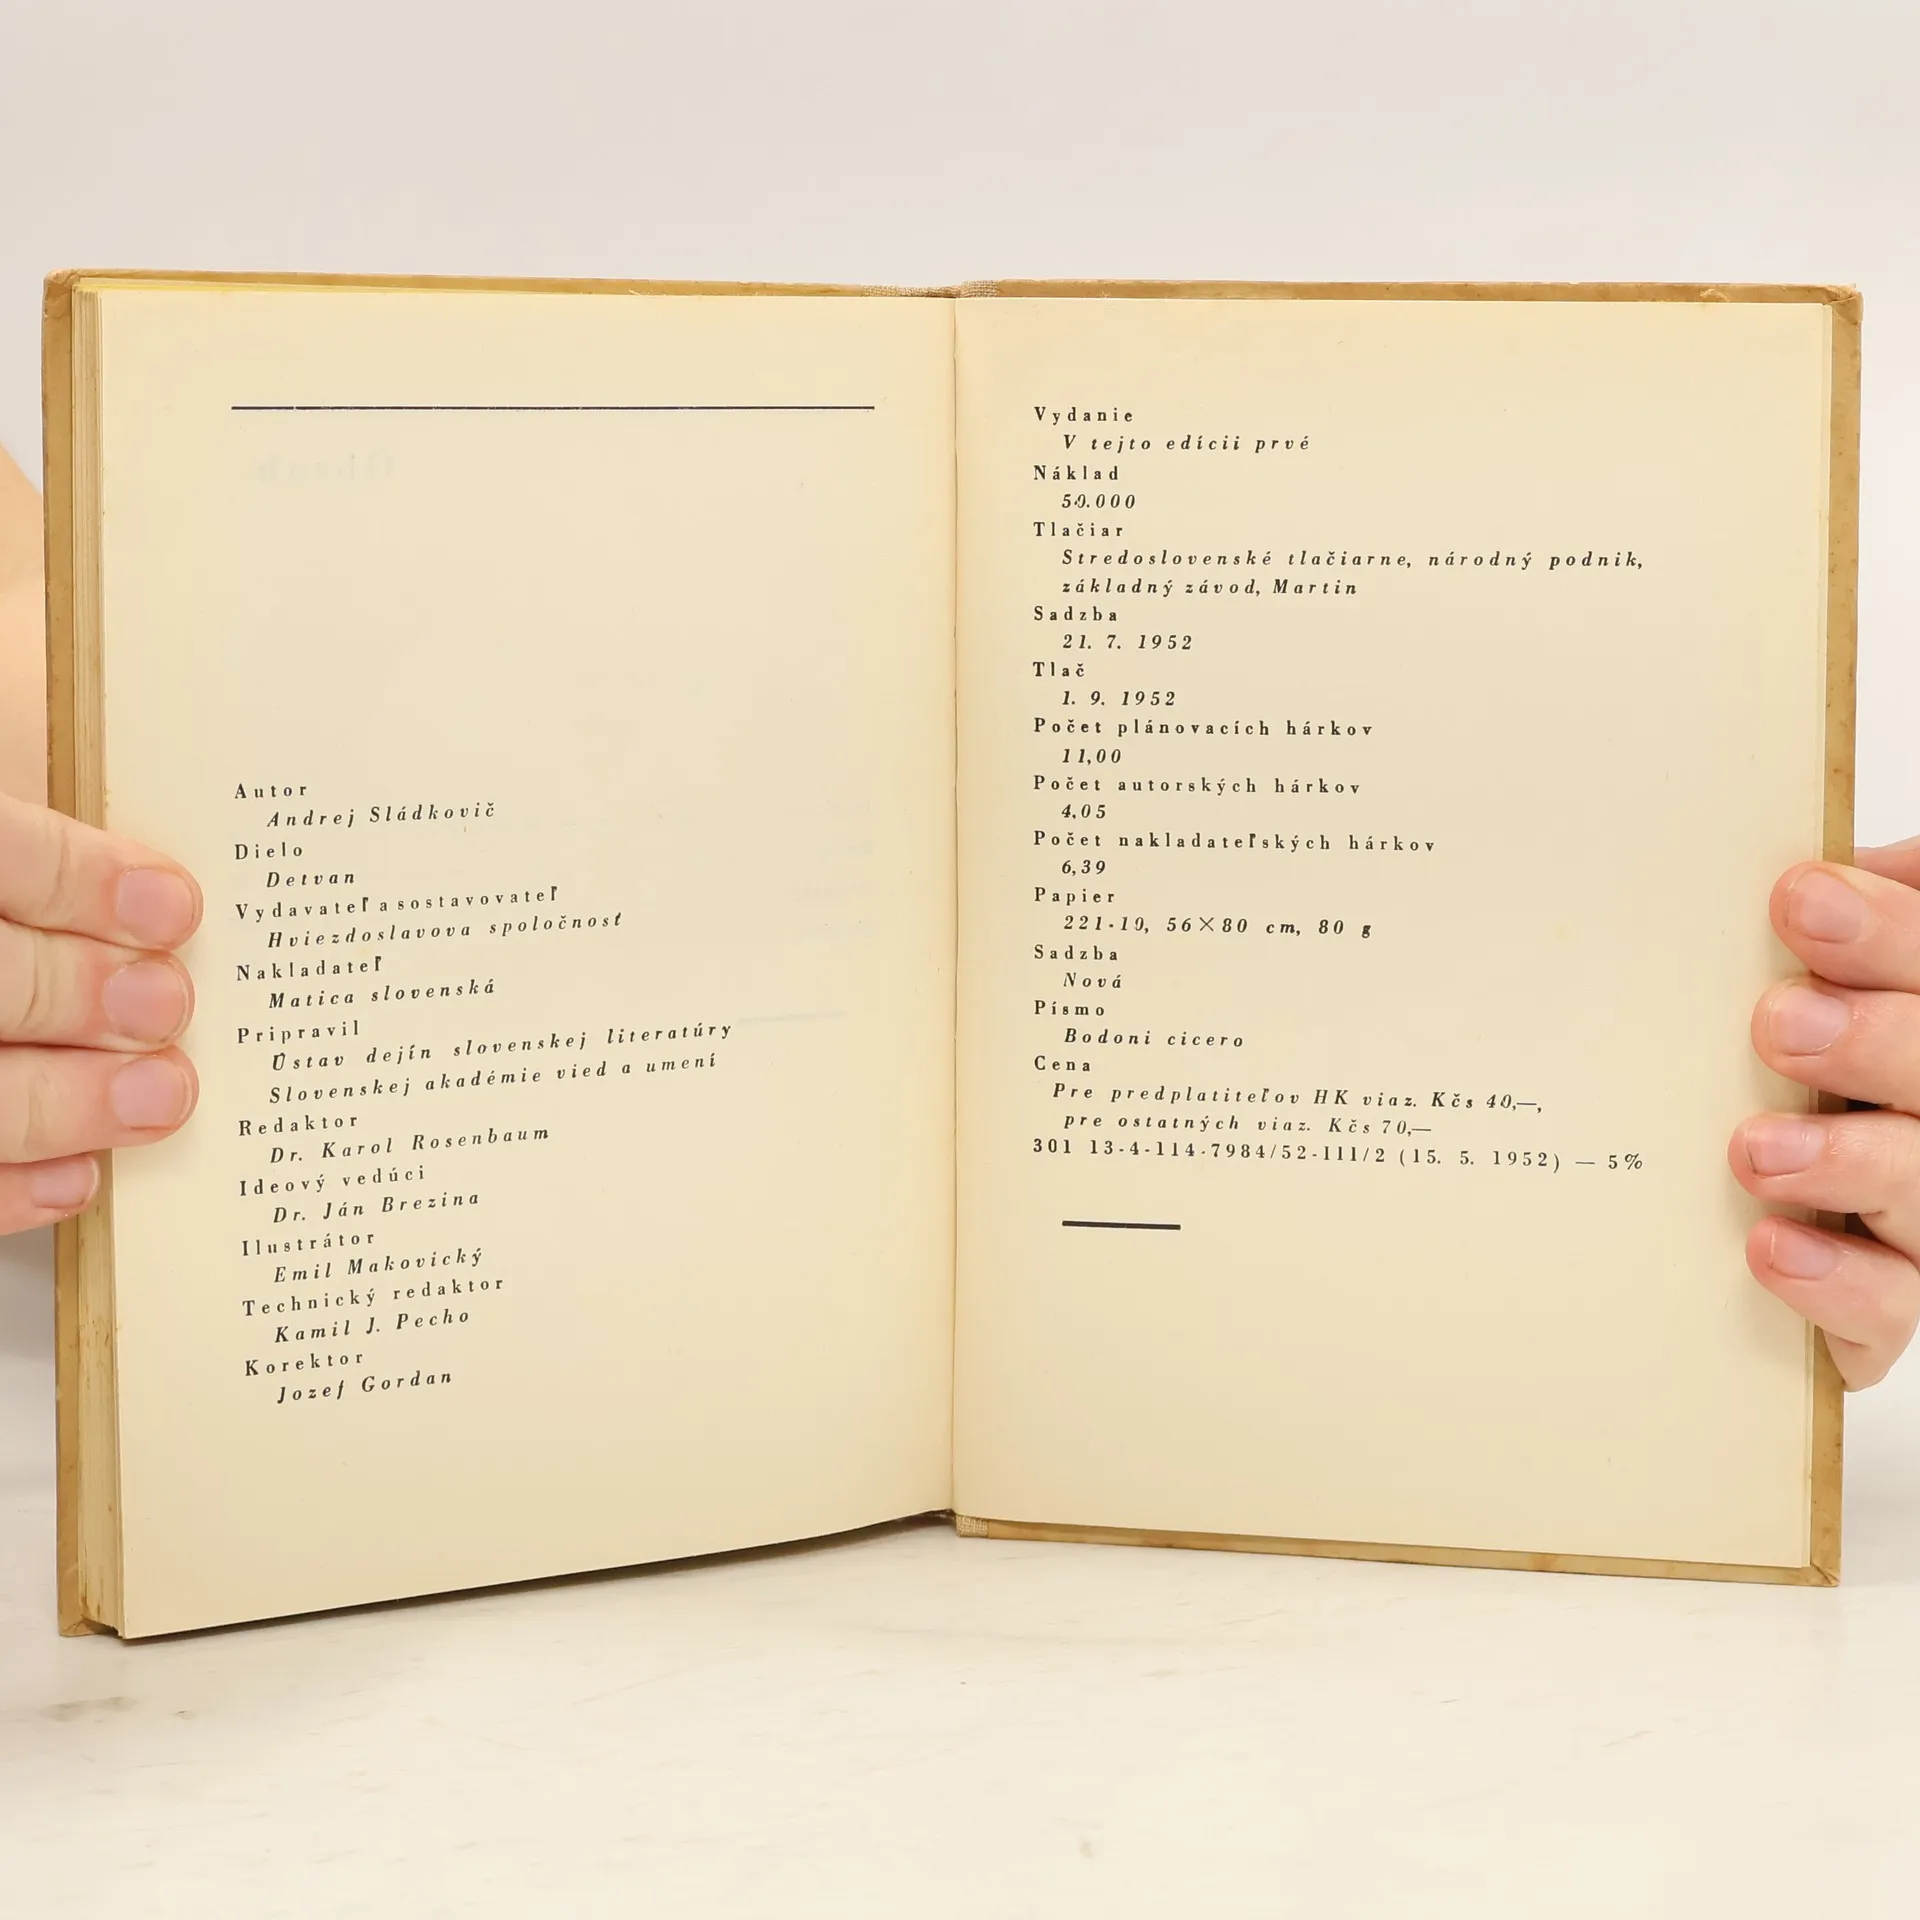 Autor
Andrej Sládkovič
Dielo
Detvan
Vydavateľ a sostavovateľ
Hviezdoslavova spoločnosť
Nakladateľ
Matica slovenská
Pripravil
Ústav dejín slovenskej literatúry
Slovenskej akadémie vied a umení
Redaktor
Dr. Karol Rosenbaum
Ideový vedúci
Dr. Ján Brezina
Ilustrátor
Emil Makovický
Technický redaktor
Kamil J. Pecho
Korektor
Jozef Gordan
Vydanie
V tejto edícii prvé
Náklad
50.000
Tlačiar
Stredoslovenské tlačiarne, národný podnik,
základný závod, Martin
Sadzba
21. 7. 1952
Tlač
1. 9. 1952
Počet plánovacích hárkov
11,00
Počet autorských hárkov
4,05
Počet nakladateľských hárkov
6,39
Papier
221-19, 56×80 cm, 80 g
Sadzba
Nová
Písmo
Bodoni cicero
Cena
Pre predplatiteľov HK viaz. Kčs 40,—,
pre ostatných viaz. Kčs 70,—
301 13-4-114-7984/52-III/2 (15. 5. 1952) — 5%